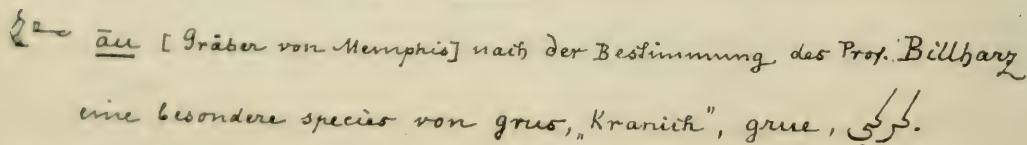 āu [Gräber von Memphis] nach der Bestimmung des Prof. Billharz
eine besondere species von grus, „Kranich", grue, كركي.